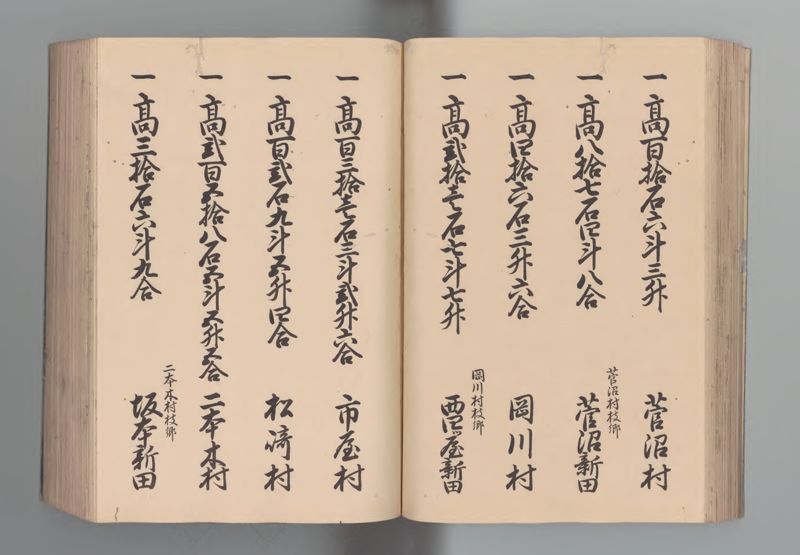 一高百拾石六斗三升 菅沼村
菅沼村枝郷
一高八拾七石四斗八合 菅沼新田
一高四拾六石三升六合 岡川村
岡川村枝郷
一高弐拾壱石七斗七升 西四屋新田
一高百三拾壱石三斗弐升六合 市屋村
一高百弐石九斗五升四合 松崎村
一高弐百五拾八石五斗五升五合 二本木村
二本木村枝郷
一高三拾石六斗九合 坂本新田